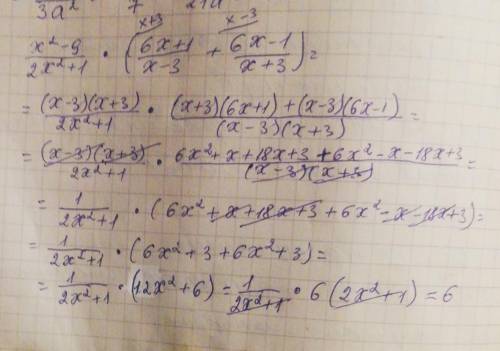 3a² 7 21a
x+3 x-3
(x²-9)/(2x²+1) · ((6x+1)/(x-3) + (6x-1)/(x+3)) =
= ((x-3)(x+3))/(2x²+1) · ((x+3)(6x+1)+(x-3)(6x-1))/((x-3)(x+3)) =
= ((x-3)(x+3))/(2x²+1) · (6x²+x+18x+3+6x²-x-18x+3)/((x-3)(x+3)) =
= 1/(2x²+1) · (6x²+x+18x+3+6x²-x-18x+3) =
= 1/(2x²+1) · (6x²+3+6x²+3) =
= 1/(2x²+1) · (12x²+6) = 1/(2x²+1) · 6(2x²+1) = 6